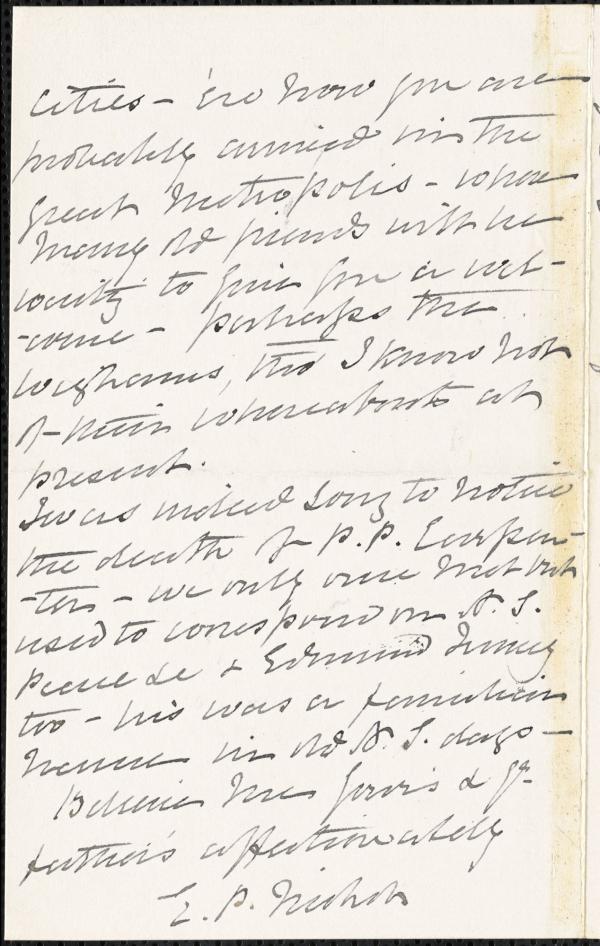 cities - 'ere now you are
probably arrived in the
great Metropolis - where
many old friends will be
waiting to give you a wel-
-come - perhaps the
Wighams, tho' I know not
of their whereabouts at
present.
I was indeed sorry to notice
the death of P.P. Carpen-
-ter - we only once met but
used to correspond on A. S.
Peace &c & Edmund Quincy
too - his was a familiar
name in old A. S. days -
Believe me yours & yr
father's affectionately
E. P. Nichol